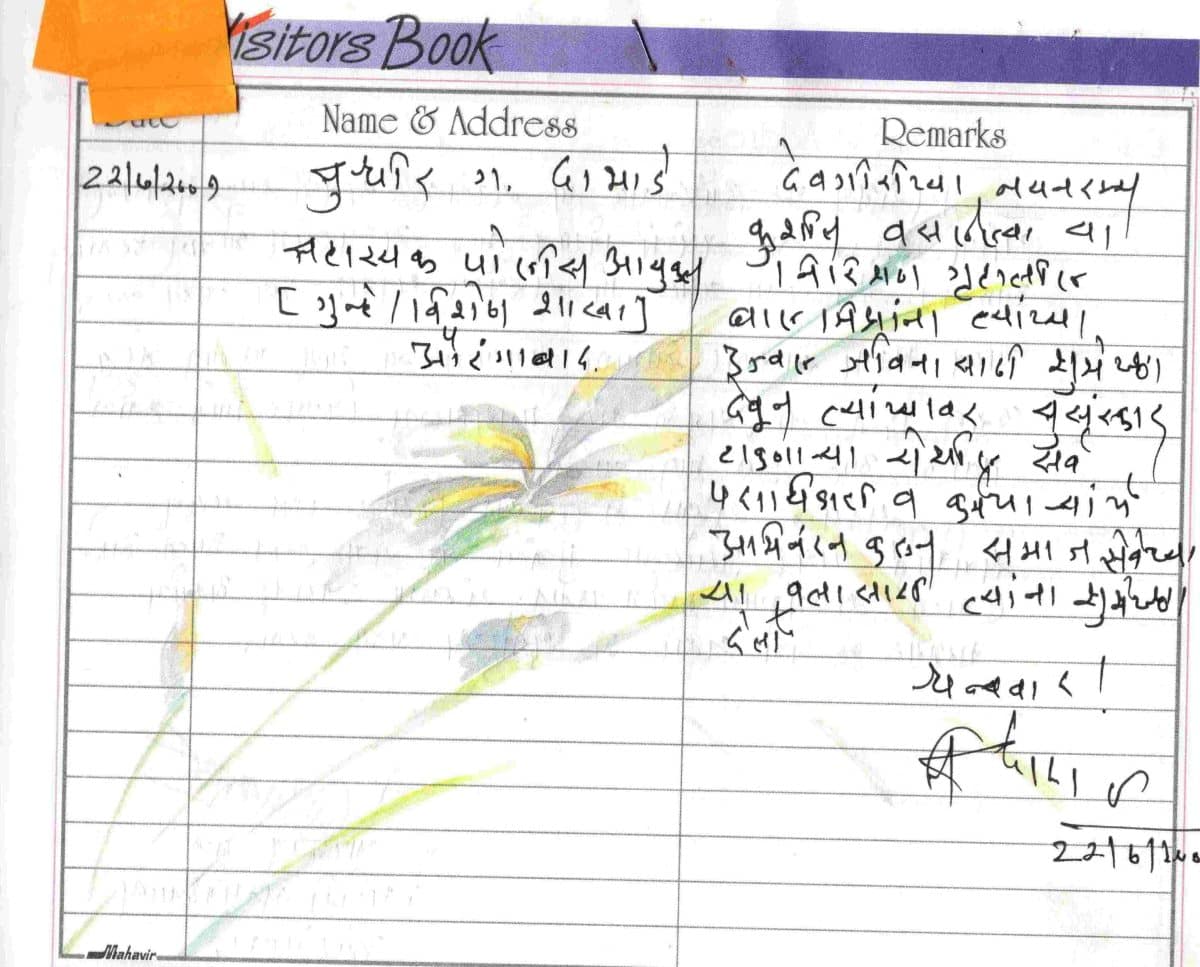 Visitors Book
Date
Name & Address
Remarks
22/6/2009
सुधीर ग. दाभाडे
सहाय्यक पोलीस आयुक्त
[गुन्हे / विशेष शाखा]
औरंगाबाद.
देवगिरीच्या नयनरम्य
कुशीत वसलेल्या या
निरिक्षण गृहातील
बाल मित्रांना त्यांच्या
उज्वल जीवना साठी शुभेच्छा
देवून त्यांच्यावर सुसंस्कार
टाकणाऱ्या येथील सर्व
पदाधिकारी व कर्मचाऱ्यांचे
अभिनंदन करून समाज सेवेच्या
या साठी त्यांना शुभेच्छा
देतो
धन्यवाद !
22/6/
Mahavir